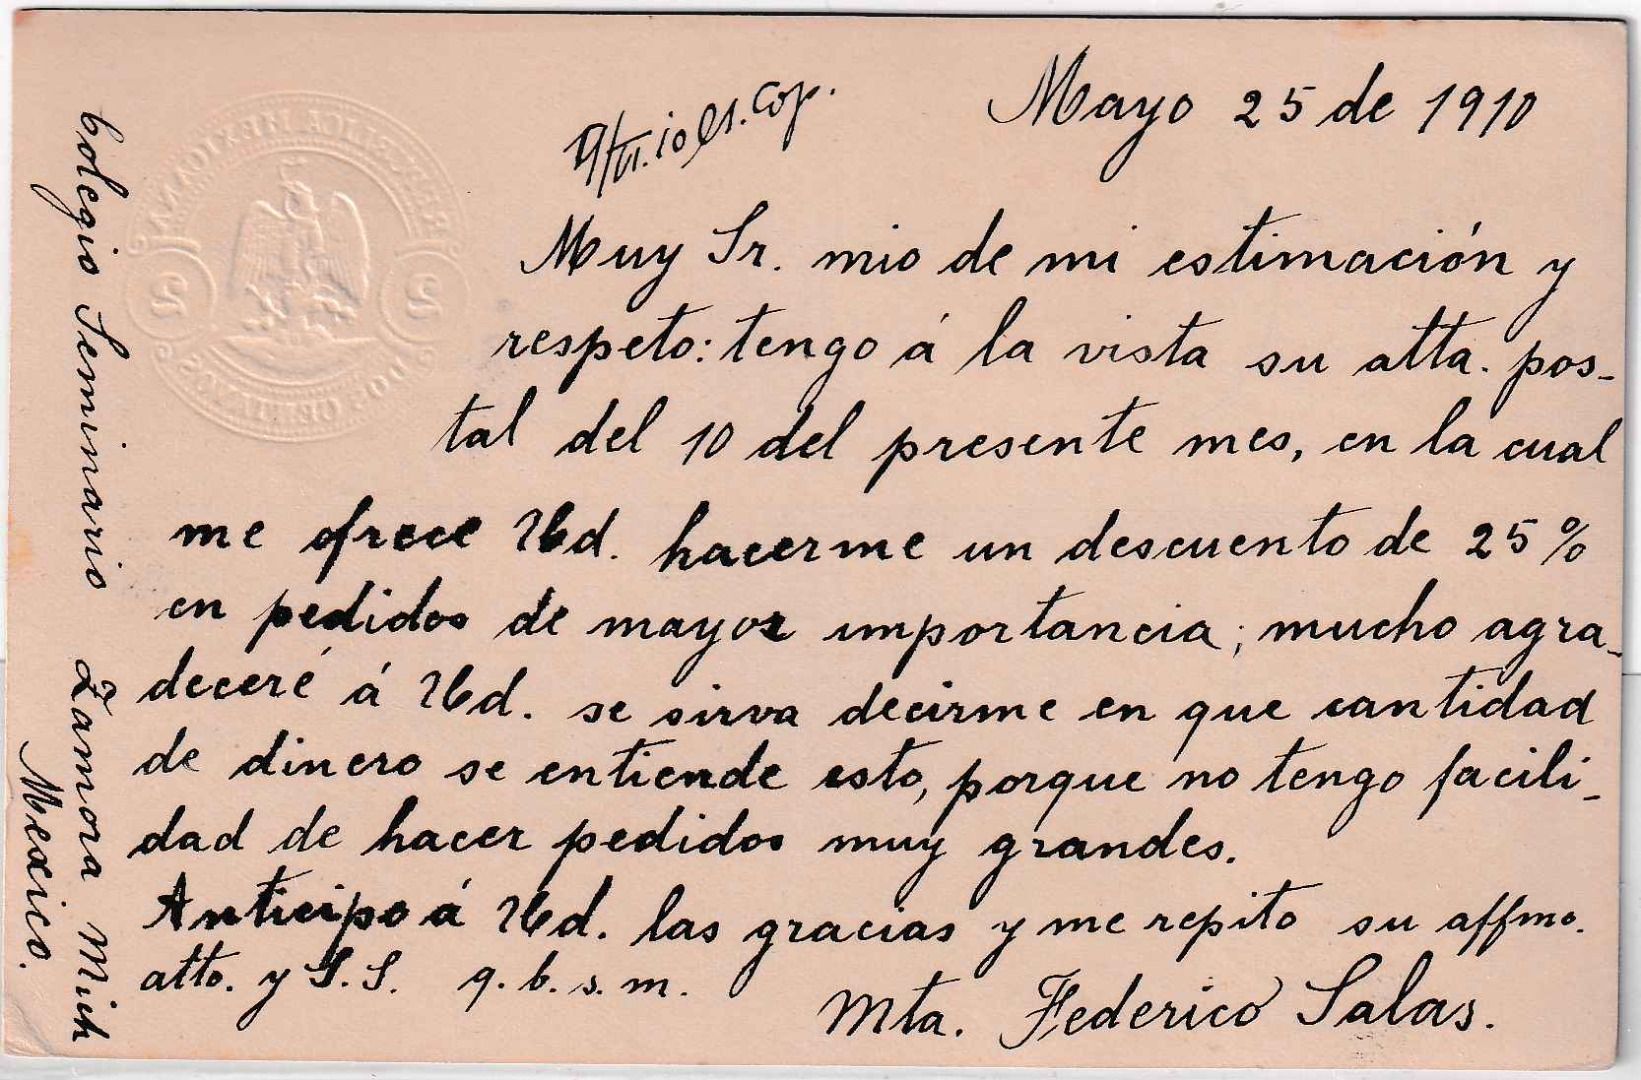 Mayo 25 de 1910
Muy Sr. mio de mi estimación y
respeto: tengo á la vista su atta. pos-
tal del 10 del presente mes, en la cual
me ofrece Ud. hacerme un descuento de 25%
en pedidos de mayor importancia; mucho agra-
deceré á Ud. se sirva decirme en que cantidad
de dinero se entiende esto, porque no tengo facili-
dad de hacer pedidos muy grandes.
Anticipo á Ud. las gracias y me repito su affmo.
atto. y S.S. q. b. s. m.
Mta. Federico Salas.
Colegio Seminario Zamora Mich
Mexico.
2
2